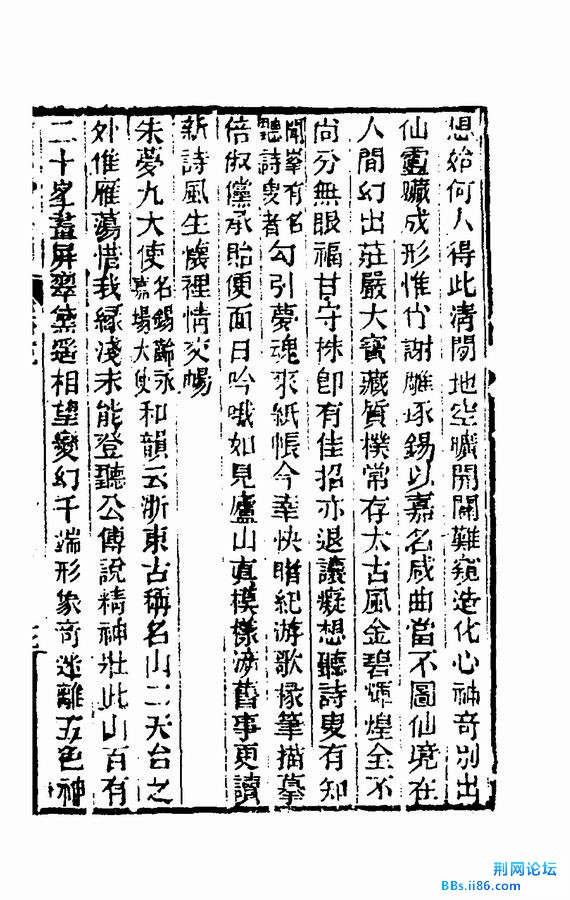 想始何人得此清閒地空曠開闢難窺造化心神奇別出
仙靈曠成形惟竹謝雕琢錫以嘉名咸曲當不圖仙境在
人間幻出莊嚴大寶藏質樸常存太古風金碧煇煌全不
尚分無眼福甘守株卽有佳招亦退讓癡想聽詩叟有知
聞峯有名聽詩叟者勾引夢魂來紙帳今幸快睹紀游歌椽筆描摹
倍俶儻承貽便面日吟哦如見廬山真模樣游舊事更讀
新詩風生懷裡情交暢
朱夢九大使名錫齡永嘉場大使和韻云浙東古稱名山二天台之
外惟雁蕩惜我緣淺未能登聽公傳說精神壯此山百有
二十峯畫屏翠黛遥相望變幻千端形象奇迷離五色神
荆网论坛
BBs.ii86.com